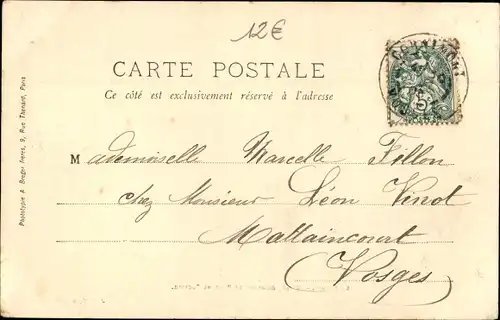 12€
CARTE POSTALE
Ce côté est exclusivement réservé à l'adresse
Mademoiselle Marcelle Fillon
chez Monsieur Léon Vinot
Mattaincourt
(Vosges)
Phototypie A. Breger Frères, 9, Rue Thénard, Paris